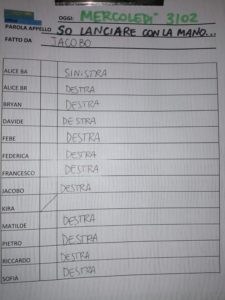 OGGI: MERCOLEDI' 3/02
PAROLA APPELLO SO LANCIARE CON LA MANO...
FATTO DA JACOBO
ALICE BA SINISTRA
ALICE BR DESTRA
BRYAN DESTRA
DAVIDE DESTRA
FEBE DESTRA
FEDERICA DESTRA
FRANCESCO DESTRA
JACOBO DESTRA
KIRA
MATILDE DESTRA
PIETRO DESTRA
RICCARDO DESTRA
SOFIA DESTRA